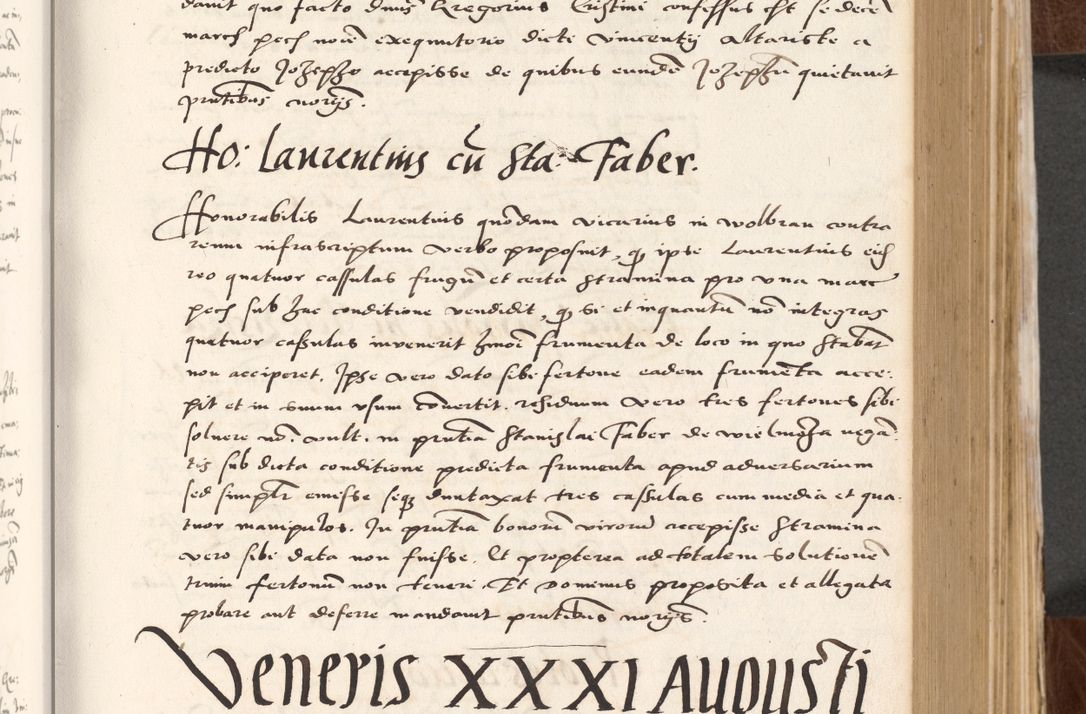 davit quo facto dnus Gregorius Cristini confessus est se decem
march pech noie exequutorio dicti Vincentij Altariste a
predicto Jozepho accepisse de quibus eunde Jozephu quietavit
pntibus norijs.
Ho: Laurentius cu Sta: Faber.
Honorabilis Laurentius quodam vicarius in Wolbram contra
reum infrascriptum verbo proposuit, q ipse Laurentius eid
reo quatuor cassulas frugu et certa stramina pro una marc
pech sub hac conditione vendidit, q si et inquantu no integras
quatuor cassulas invenerit hmoi frumenta de loco in quo stabat
non acciperet. Ipse vero dato sibi fertone eadem frumeta acce:
pit et in suum usum covertit. residuum vero tres fertones sibi
solvere no: vult. in pntia Stanislai Faber de Wielmoza negan:
tis sub dicta conditione predicta frumenta apud adversarium
sed simplr emisse seq duntaxat tres cassulas cum media et qua:
tuor manipulos. In pntia bonoru virorum accepisse stramina
vero sibi data non fuisse. Et propterea ad totalem solutione
trium fertonu non teneri. Et dominus proposita et allegata
probare aut deferre mandavit pntibus norijs.
Veneris XXXI Augusti